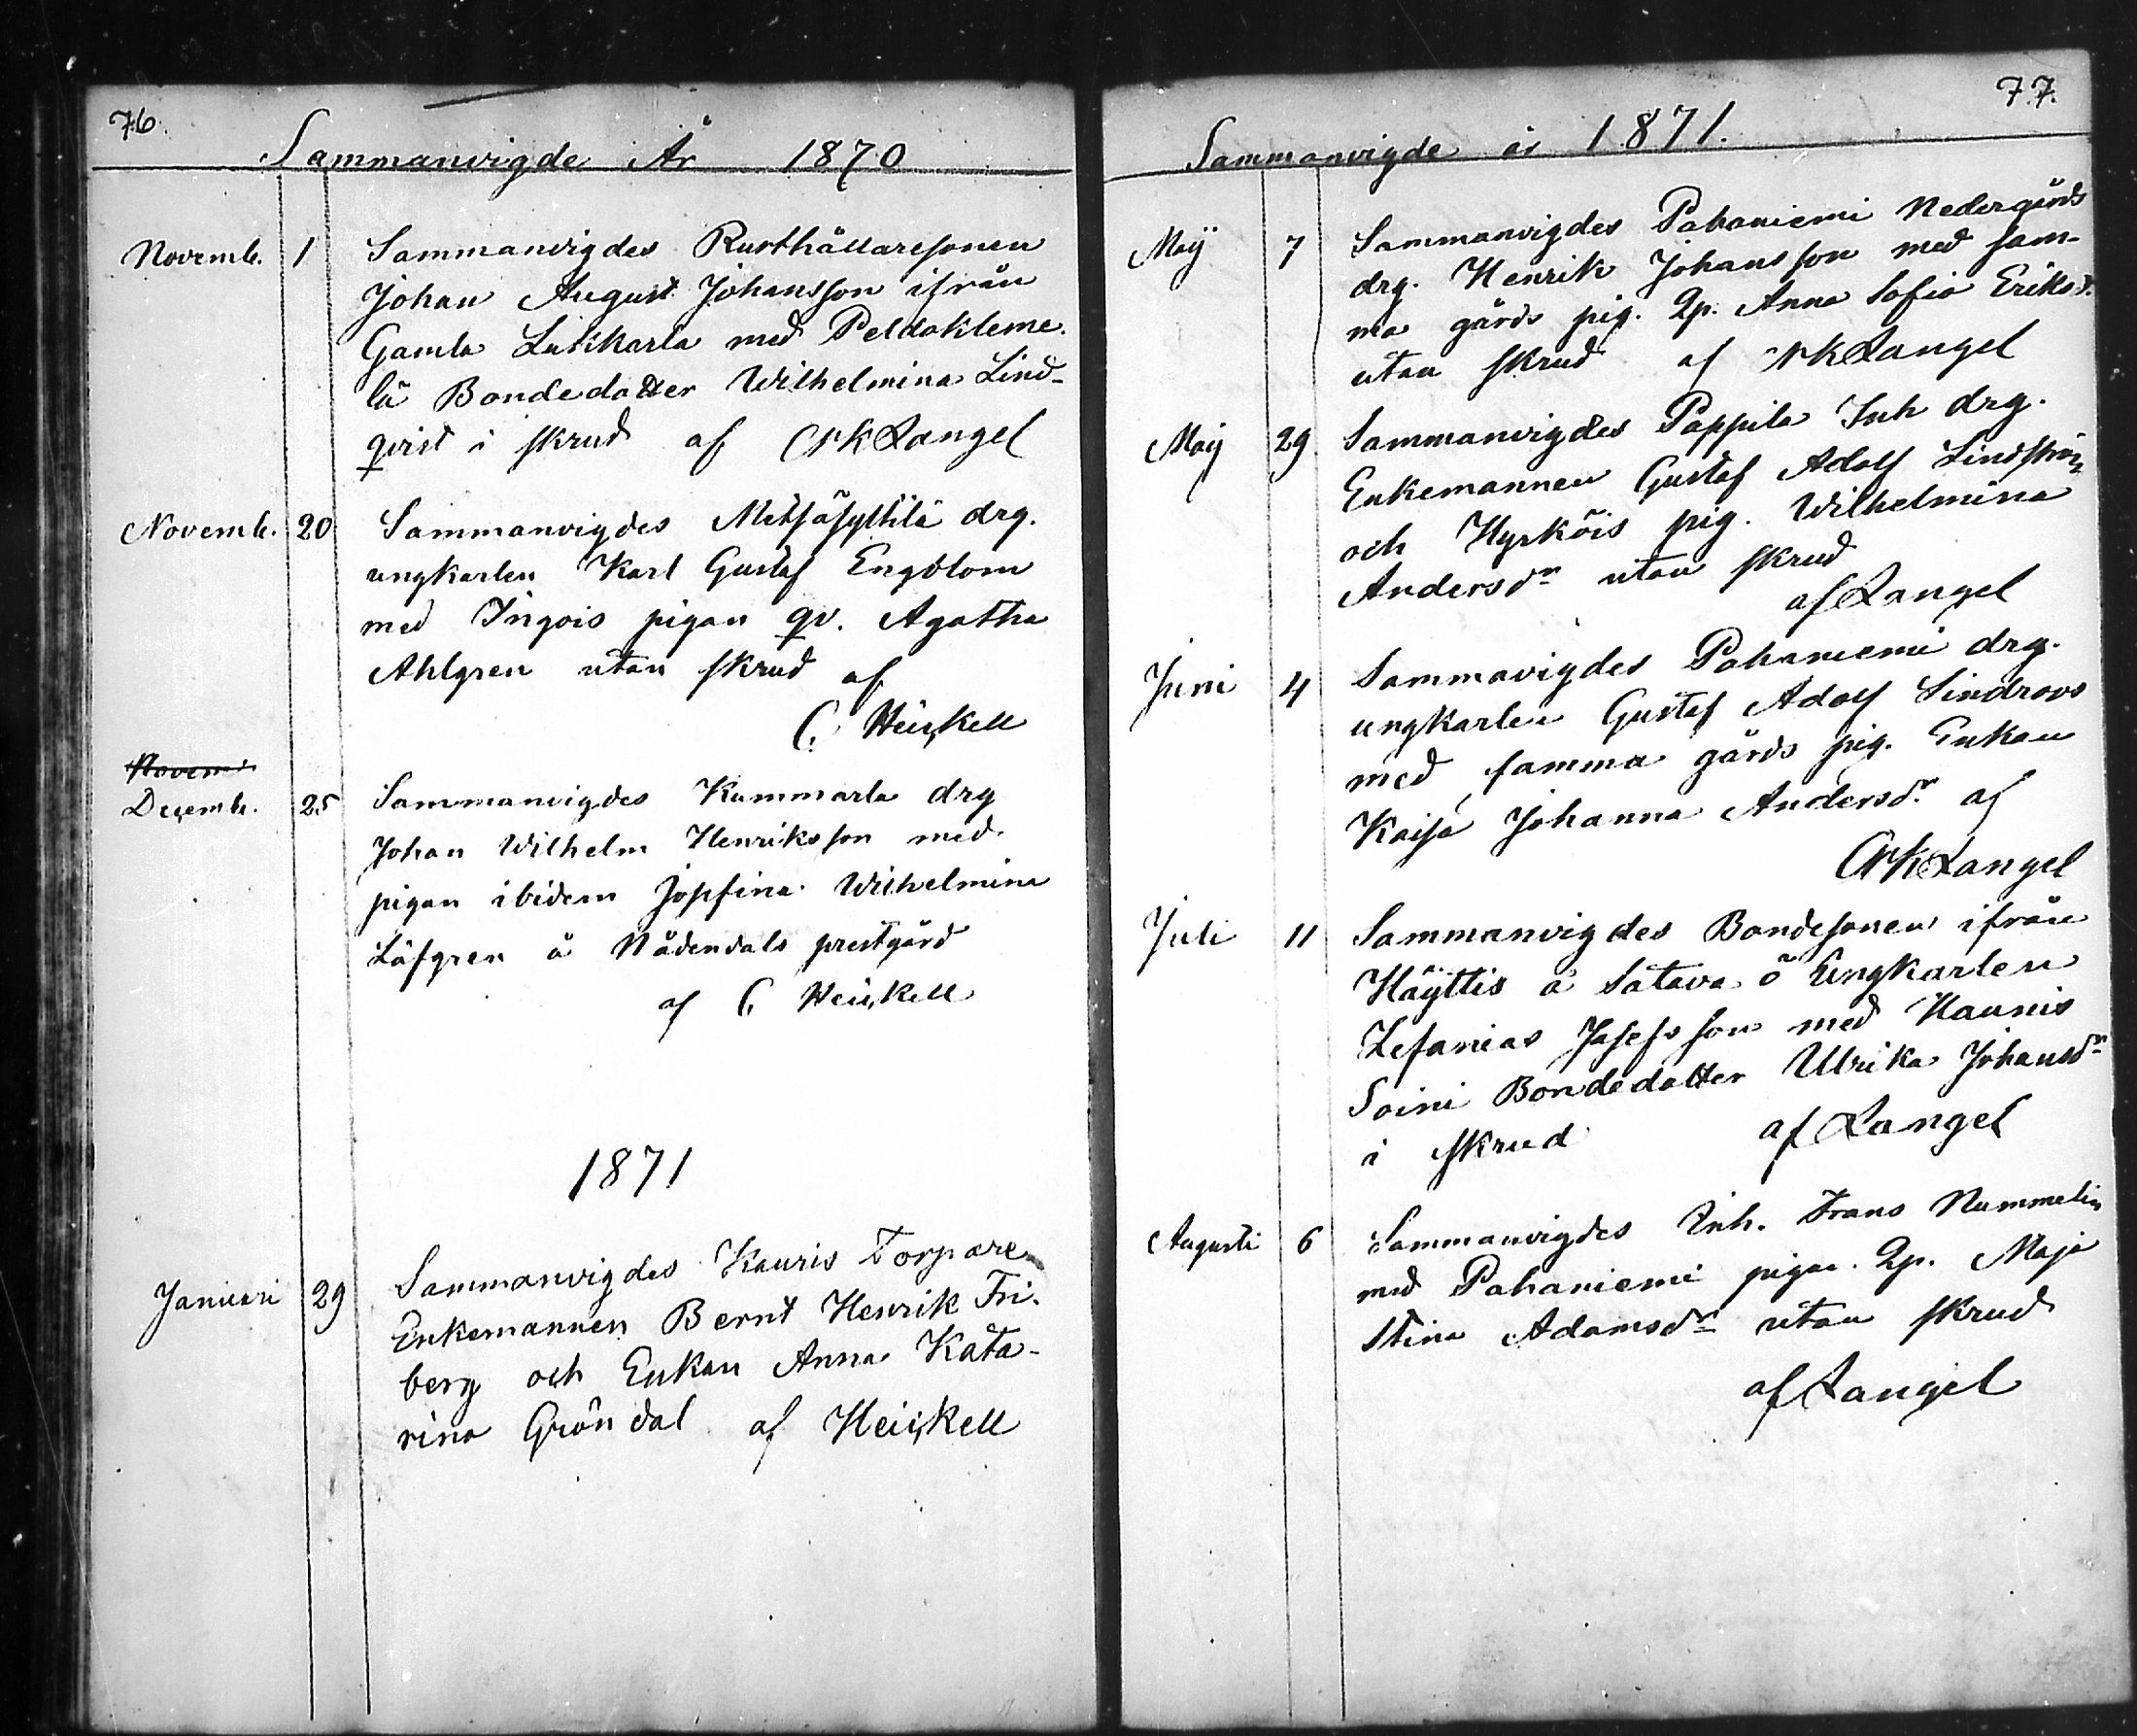 76.
Sammanvigde År 1870
Novemb. 1 Sammanvigdes Rusthållaresonen
Johan August Johansson ifrån
Gamla Lukkarla med Peldokleme-
lä Bondedotter Wilhelmina Lind-
qvist i skrud af CrKRangel
Novemb. 20 Sammanvigdes Metsäkyltilä drg.
ungkarlen Karl Gustaf Engblom
med Ingois pigan qv. Agatha
Ahlgren utan skrud af
C. Heickell
Novemb
Decemb. 25 Sammanvigdes Kummarla drg
Johan Wilhelm Henriksson med
pigan ibidem Josefina Wilhelmina
Löfgren å Nådendals prestgård
af C. Heickell
1871
Januari 29 Sammanvigdes Kauris Torparen
Enkemannen Bernt Henrik Fri-
berg och Enkan Anna Kata-
rina Gröndal af Heickell
77.
Sammanvigde år 1871.
Maÿ 7 Sammanvigdes Pahaniemi Nedergårds
drg. Henrik Johansson med sam-
ma gårds pig. Qp. Anna Sofia Eriksd.
utan skrud af CrKRangel
Maÿ 29 Sammanvigdes Pappila Inh drg.
Enkemannen Gustaf Adolf Lindström
och Hyrköis pig. Wilhelmina
Andersdr utan skrud
af Rangel
Juni 4 Sammavigdes Pahaniemi drg.
ungkarlen Gustaf Adolf Lindroos
med samma gårds pig. Enkan
Kaisa Johanna Andersdr. af
CrKRangel
Juli 11 Sammanvigdes Bondesonen ifrån
Käÿttis å Satava ö Ungkarlen
Zefanias Josefsson med Kaunis
Soini Bondedotter Ulrika Johansdr
i skrud af Rangel
Augusti 6 Sammanvigdes Inh. Frans Nummelin
med Pahaniemi pigan Qp. Maja
Stina Adamsdr utan skrud
af Rangel